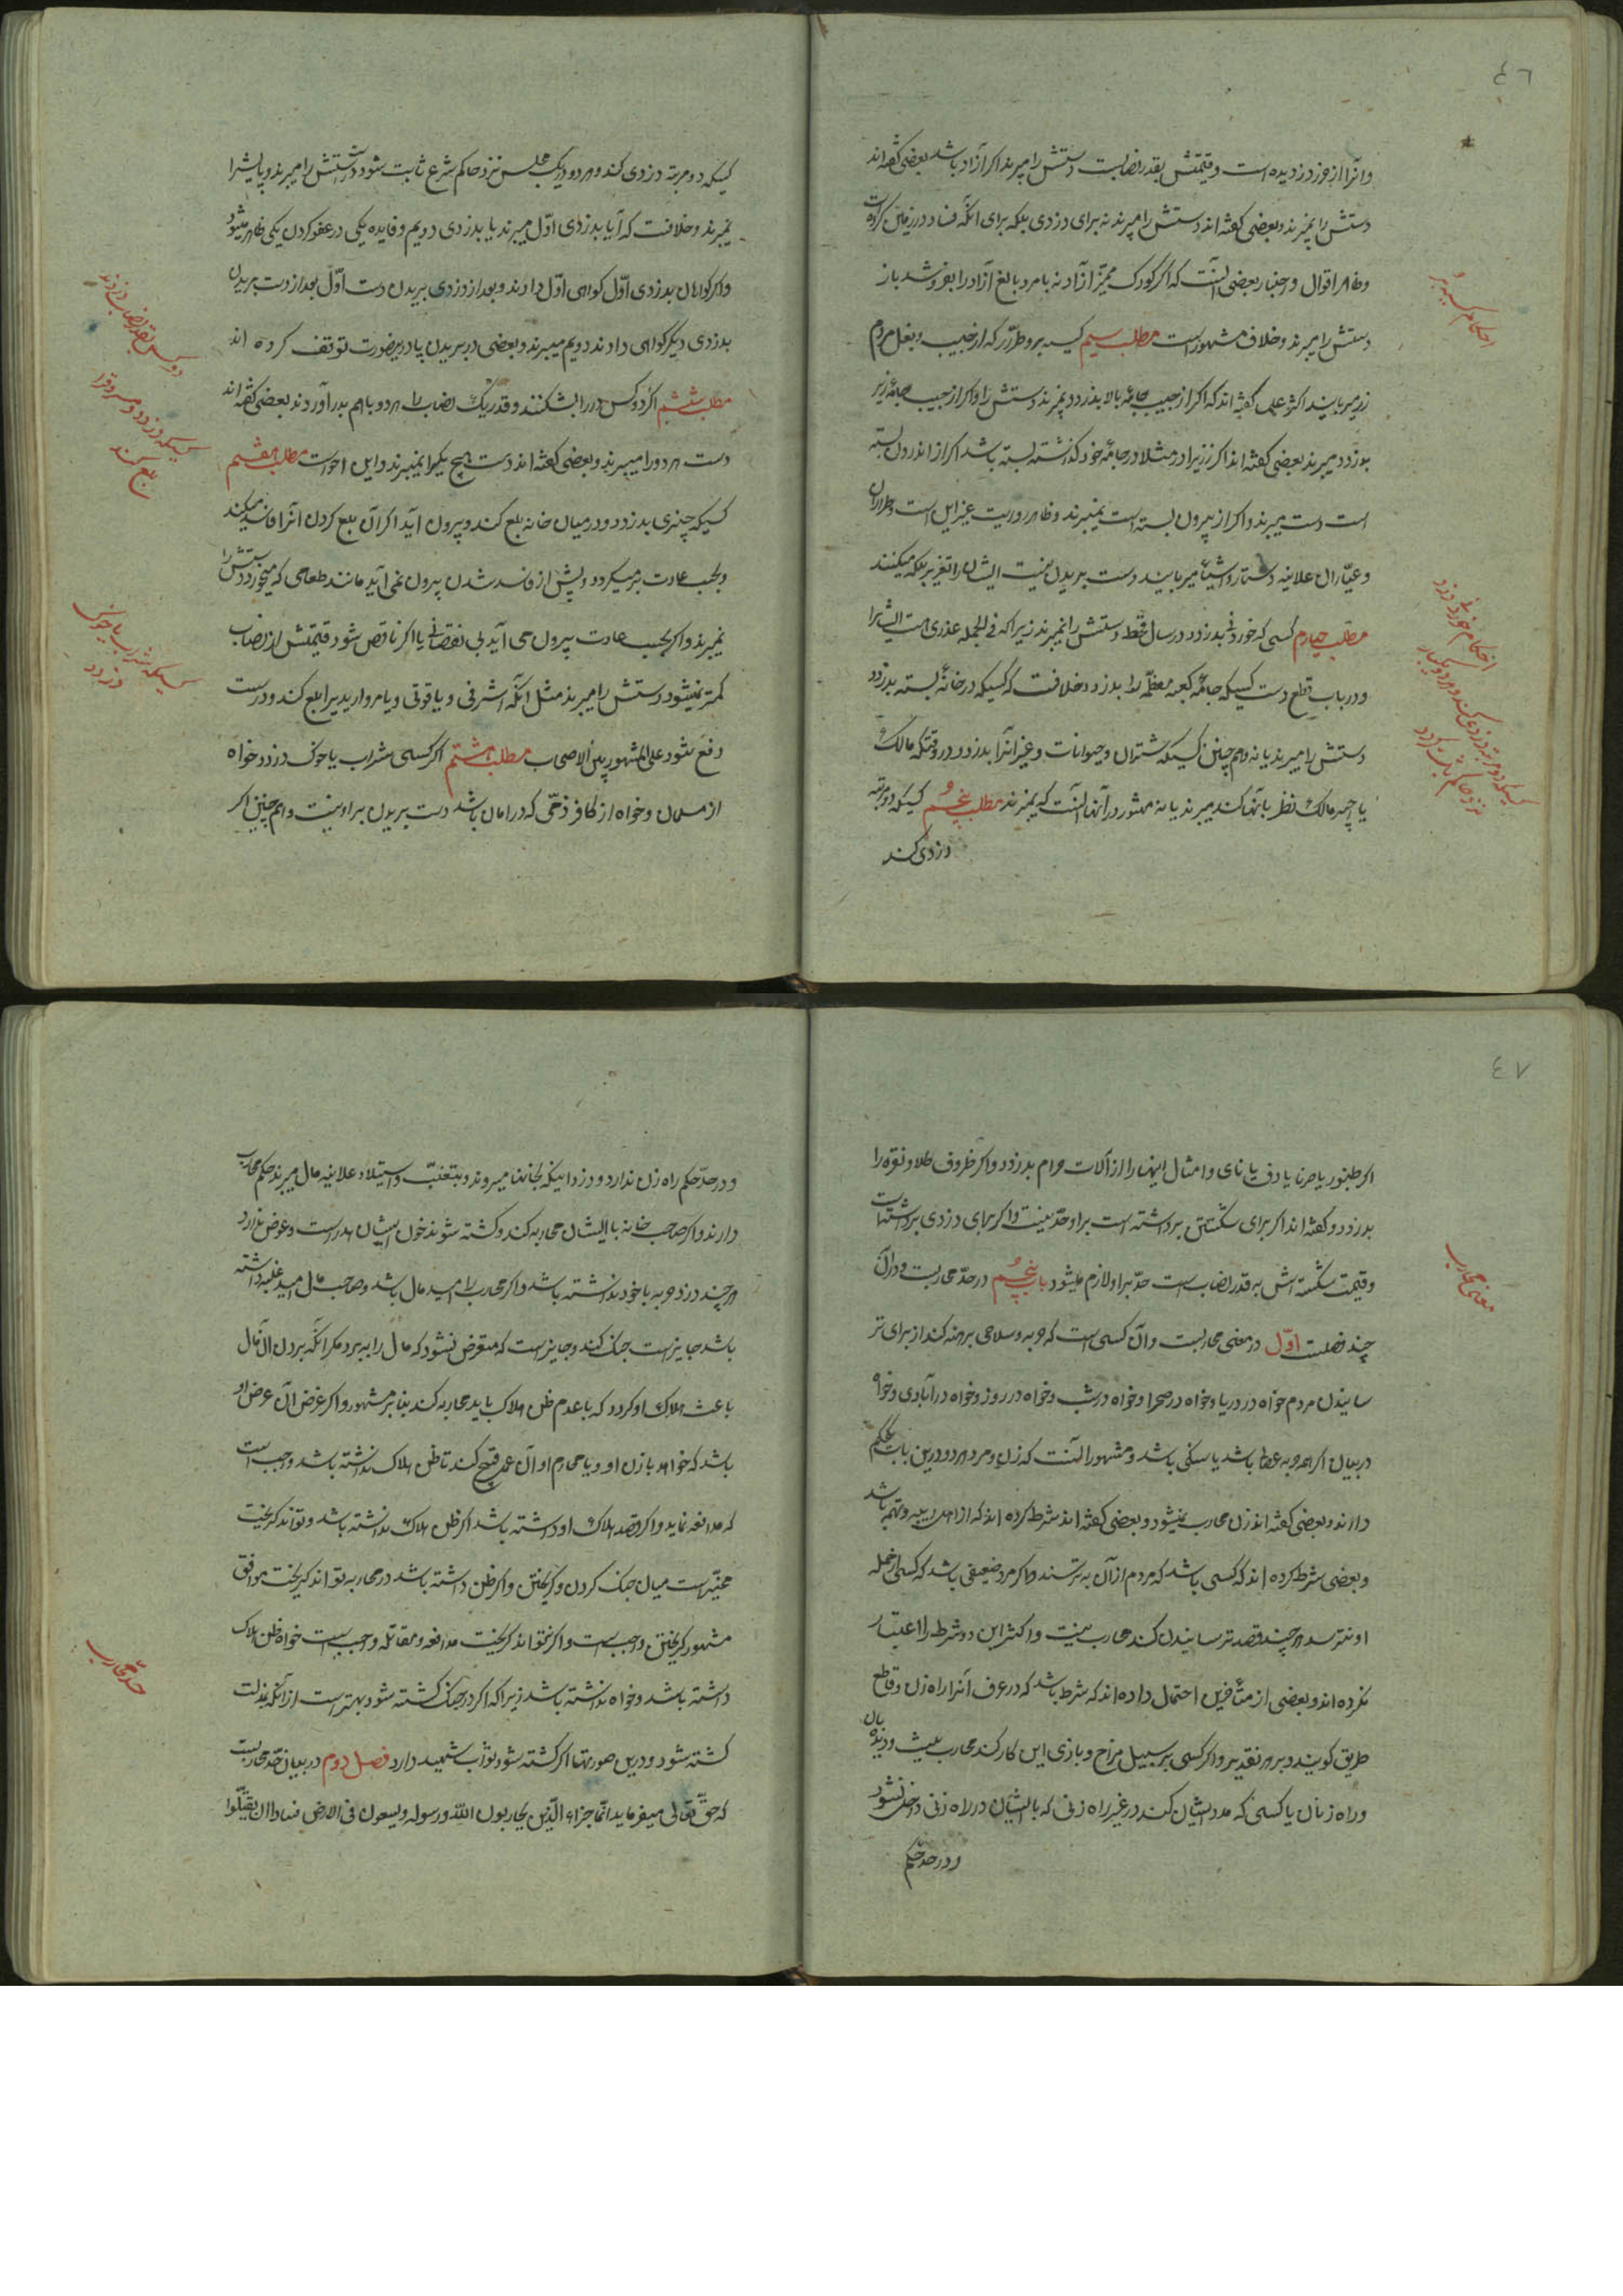 ٤٦
وانرا از حرز دزدیده است و قیمتش بقدر نصابست دستش را میبرند اکر ازاد باشد بعضی کفته‌اند
دستش را نمیبرند و بعضی کفته اند دستش را میبرند نه برای دزدی بلکه برای انکه فساد در زمین کرده است
و ظاهر اقوال و اخبار بعضی انست که اکر کودک ممیز آزاد نه یا مرد بالغ آزاد را بفروشد باز
دستش را میبرند و خلاف مشهور است مطلب سیم کیسه بر و طرّار که از جیب و بغل مردم
زر میربایند اکثر علما کفته اند که اکر از جیب جامهٔ بالا بدزدد نمیبرند دستش را و اکر از جیب جامهٔ زیر
بدزدد میبرند بعضی کفته اند اکر زر را در مثلا در جامهٔ خود کذاشته بسته باشد اکر از اندرون بسته
است دست میبرند و اکر از بیرون بسته است نمیبرند و ظاهر روایت غیر این است و طراران
و عیّاران علانیه دستار و اشیا میربایند دست بریدن نیست ایشان را تعزیر بلکه میکنند
مطلب چهارم کسی که خوردنی بدزدد در سال قحط دستش را نمیبرند زیرا که فی الجمله عذری هست ایشانرا
و در باب قطع دست کسیکه جامهٔ کعبه معظمه را بدزدد خلافست که کسیکه در خانهٔ بسته بدزدد
دستش را میبرند یا نه و هم چنین کسیکه شتران و حیوانات و غیر انرا بدزدد در وقتیکه مالک
یا چه مالک نظر بانها کند میبرند یا نه مشهور در آنها انست که نمیبرند مطلب پنجم کسیکه دو مرتبه
دزدی کند
احکام کیسه بر
احکام خوردنی دزد
کسیکه دو مرتبه دزدی کند و هر دو یکبار
نزد حاکم ثابت کردد
کسیکه دو مرتبه دزدی کند و هر دو در یک مجلس نزد حاکم شرع ثابت شود دستش را میبرند و پایشرا
نمیبرند و خلافست که آیا بدزدی اوّل میبرند یا بدزدی دویم و فایده یکی در عفو کردن یکی ظاهر میشود
و اکر کواهان بدزدی اوّل کواهی اوّل دادند و بعد از دزدی ببریدن دست اوّل بعد از دست بریدن
بدزدی دیکر کواهی دادند دویم میبرند و بعضی در بریدن پا درینصورت توقف کرده اند
مطلب ششم اکر دو کس در را بشکنند و قدر یک نصاب را هر دو باهم بدر آوردند بعضی کفته اند
دست هر دو را میبرند و بعضی کفته اند دست هیچ یکرا نمیبرند و این احوط است مطلب هفتم
کسیکه چیزی بدزدد و در میان خانه بلع کند و بیرون آید اکر آن بلع کردن انرا فاسد میکند
و بحسب عادت بر میکردد و پیش از فاسد شدن بیرون نمی آید مانند طعامی که میخورد دستش را
نمیبرند و اکر بحسب عادت بیرون می آید بی نقصانی یا اکر ناقص شود قیمتش از نصاب
کمتر نمیشود دستش را میبرند مثل انکه اشرفی و یاقوتی و یا مرواریدیرا بلع کند و درست
دفع شود علی المشهور بین الاصحاب مطلب هشتم اکر کسی شراب یا خوک دزدد خواه
از مسلمان و خواه از کافر ذمّی که در امان باشد دست بریدن بر او نیست و هم چنین اکر
دو کس بقدر نصاب دزدند
کسیکه دزدد و مسروق را
بلع کند
کسیکه شراب یا خوک
دزدد
٤٧
اکر طنبور یا سرنا یا دف یا نای و امثال اینها را از آلات حرام بدزدد و اکر ظروف طلا و نقره را
بدزدد و کفته اند اکر برای شکستن برداشته است بر او حدّ نیست و اکر برای دزدی برداشته است
و قیمت شکسته اش به قدر نصاب است حدّ بر او لازم میشود باب پنجم در حدّ محاربست و در آن
چند فصلست اوّل در معنی محاربست و آن کسی است که حربه و سلاحی برهنه کند از برای تر
سانیدن مردم خواه در دریا و خواه در صحرا و خواه در شب و خواه در روز و خواه در آبادی و خواه
در بیابان اکرچه حربه عصا باشد یا سنکی باشد و مشهور انست که زن و مرد هر دو درین باب یکحکم
دارند و بعضی کفته اند زن محارب نمیشود و بعضی کفته اند شرط کرده اند که از اهل ریبه و تهمه باشد
و بعضی شرط کرده اند که کسی باشد که مردم از آن به ترسند و اکر مرد ضعیفی باشد که کسی از حمله
او نترسد هر چند قصد ترسانیدن کند محارب نیست و اکثر این دو شرط را اعتبار
نکرده اند و بعضی از متأخرین احتمال داده اند که شرط باشد که در عرف آنرا راه زن و قاطع
طریق کویند و بر هر تقدیر و اکر کسی بر سبیل مزاح و بازی این کار کند محارب نیست و دیده بان
و راه زنان یا کسی که مدد ایشان کند در غیر راه زنی که با ایشان در راه زنی داخل نشود
و در حدّ حکم
معنی محارب
و در حدّ حکم راه زن ندارد و دزدانیکه بخانها میروند و بتغلّب و استیلاء علانیه مال میبرند حکم محارب
دارند و اکر صاحب خانه با ایشان محاربه کند و کشته شوند خون ایشان هدر است و عوض ندارد
هر چند دزد حربه با خود نداشته باشد و اکر محارب را امید مال باشد و صاحب مال امید غلبه داشته
باشد جایز است جنک کند و جایز است که متعرض نشود که مال را به برد مکر انکه بردن آن مال
باعث هلاک او کردد که با عدم ظن هلاک باید محاربه کند بنا بر مشهور و اکر غرض آن عرض او
باشد که خواهد با زن او و یا محارم او آن عمل قبیح کند تا ظن هلاک نداشته باشد واجب است
که مدافعه نماید و اکر قصد هلاک او داشته باشد اکر ظن هلاک نداشته باشد و تواند کریخت
مخیّر است میان جنک کردن و کریختن و اکر ظن داشته باشد در محاربه تواند کریخت موافق
مشهور کریختن واجب است و اکر نتواند کریخت مدافعه و مقاتله واجب است خواه ظن هلاک
داشته باشد و خواه نداشته باشد زیرا که اکر در جنک کشته شود بهتر است از انکه بذلت
کشته شود و درین صورتها اکر کشته شود ثواب شهید دارد فصل دوم در بیان حدّ محاربست
که حقّ تعالی میفرماید انّما جزاء الّذین یحاربون اللّه و رسوله و یسعون فی الارض فسادا ان یقتّلوا
حدّ محارب